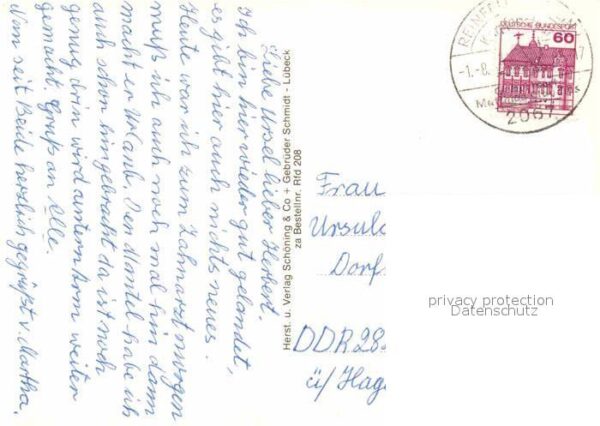 Liebe Ursel lieber Herbert.
Ich bin hier wieder gut gelandet,
es gibt hier auch nichts neues.
Heute war ich zum Zahnarzt morgen
muß ich auch noch mal hin dann
macht er Urlaub. Den Mantel habe ich
auch schon hingebracht da ist noch
genug drin wird untern Arm weiter
gemacht. Gruß an alle.
Nun seit Beide herzlich gegrüßt v. Martha.
Herst. u. Verlag Schöning & Co + Gebrüder Schmidt - Lübeck
za Bestellnr. Rfd 208
DEUTSCHE BUNDESPOST
60
REINFELD
-1.-8.
2067
Frau
Ursula
Dorf
DDR 28
ü/Hage
privacy protection
Datenschutz